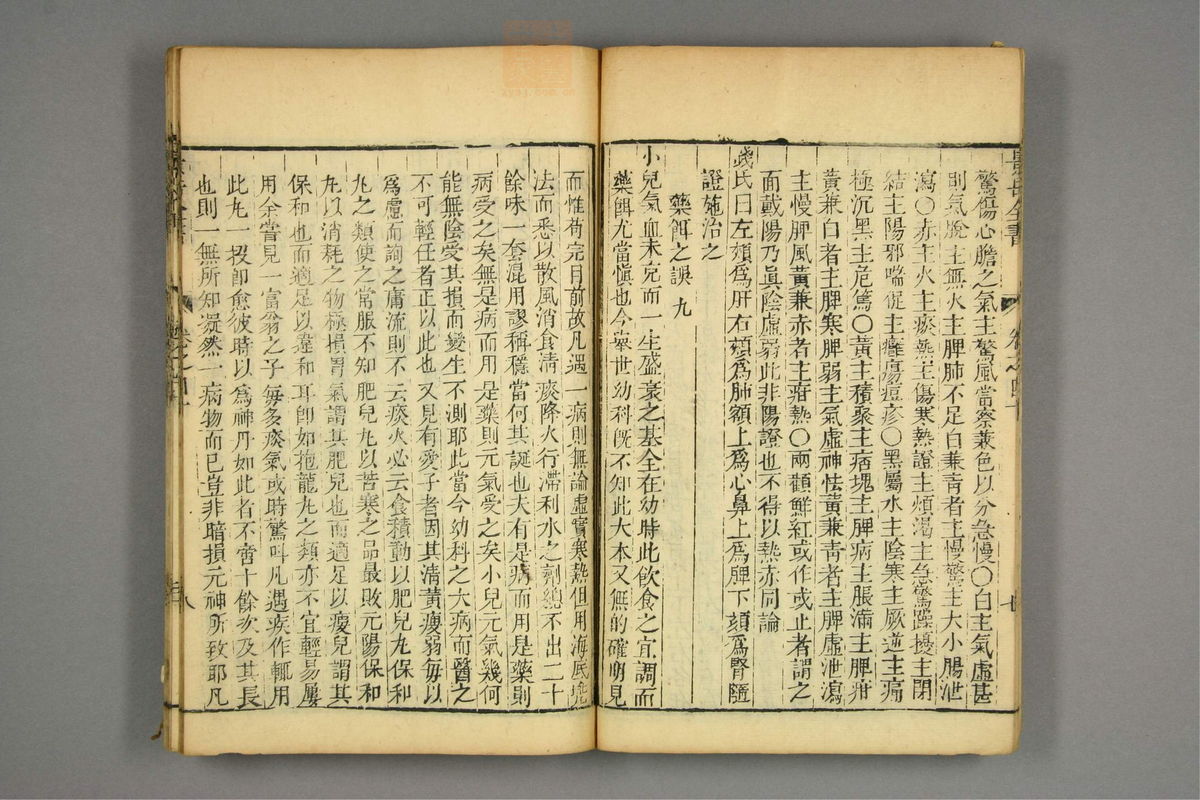 景岳全書
卷之四十
驚傷心膽之氣主驚風當察兼色以分急慢〇白主氣虛甚
則氣脫主無火主脾肺不足白兼青者主慢驚主大小腸泄
瀉〇赤主火主痰熱主傷寒熱證主煩渴主急驚躁擾主閉
結主陽邪喘促主癰瘍痘疹〇黑屬水主陰寒主厥逆主痛
極沉黑主危篤〇黃主積聚主痞塊主脾病主脹滿主脾疳
黃兼白者主脾寒脾弱主氣虛神怯黃兼青者主脾虛泄瀉
主慢脾風黃兼赤者主疳熱〇兩顴鮮紅或作或止者謂之
面戴陽乃真陰虛弱此非陽證也不得以熱赤同論
錢氏曰左頰為肝右頰為肺額上為心鼻上為脾下頦為腎隨
證施治之
藥餌之誤九
小兒氣血未充而一生盛衰之基全在幼時此飲食之宜調而
藥餌尤當慎也今舉世幼科既不知此大本又無的確明見
而惟苟完目前故凡遇一病則無論虛實寒熱但用海底兜
法而悉以散風消食清痰降火行滯利水之劑總不出二十
餘味一套混用謬稱穩當何其誕也夫有是病而用是藥則
病受之矣無是病而用是藥則元氣受之矣小兒元氣幾何
能無陰受其損而變生不測耶此當今幼科之大病而醫之
不可輕任者正以此也又見有愛子者因其清黃瘦弱每以
為慮而詢之庸流則不云痰火必云食積動以肥兒丸保和
丸之類使之常服不知肥兒丸以苦寒之品最敗元陽保和
丸以消耗之物極損胃氣謂其肥兒也而適足以瘦兒謂其
保和也而適足以違和耳卽如抱龍丸之類亦不宜輕易屢
用余嘗見一富翁之子每多痰氣或時驚叫凡遇疾作輒用
此丸一投卽愈彼時以為神丹如此者不啻十餘次及其長
也則一無所知凝然一病物而已豈非暗損元神所致耶凡
卷之四十
八